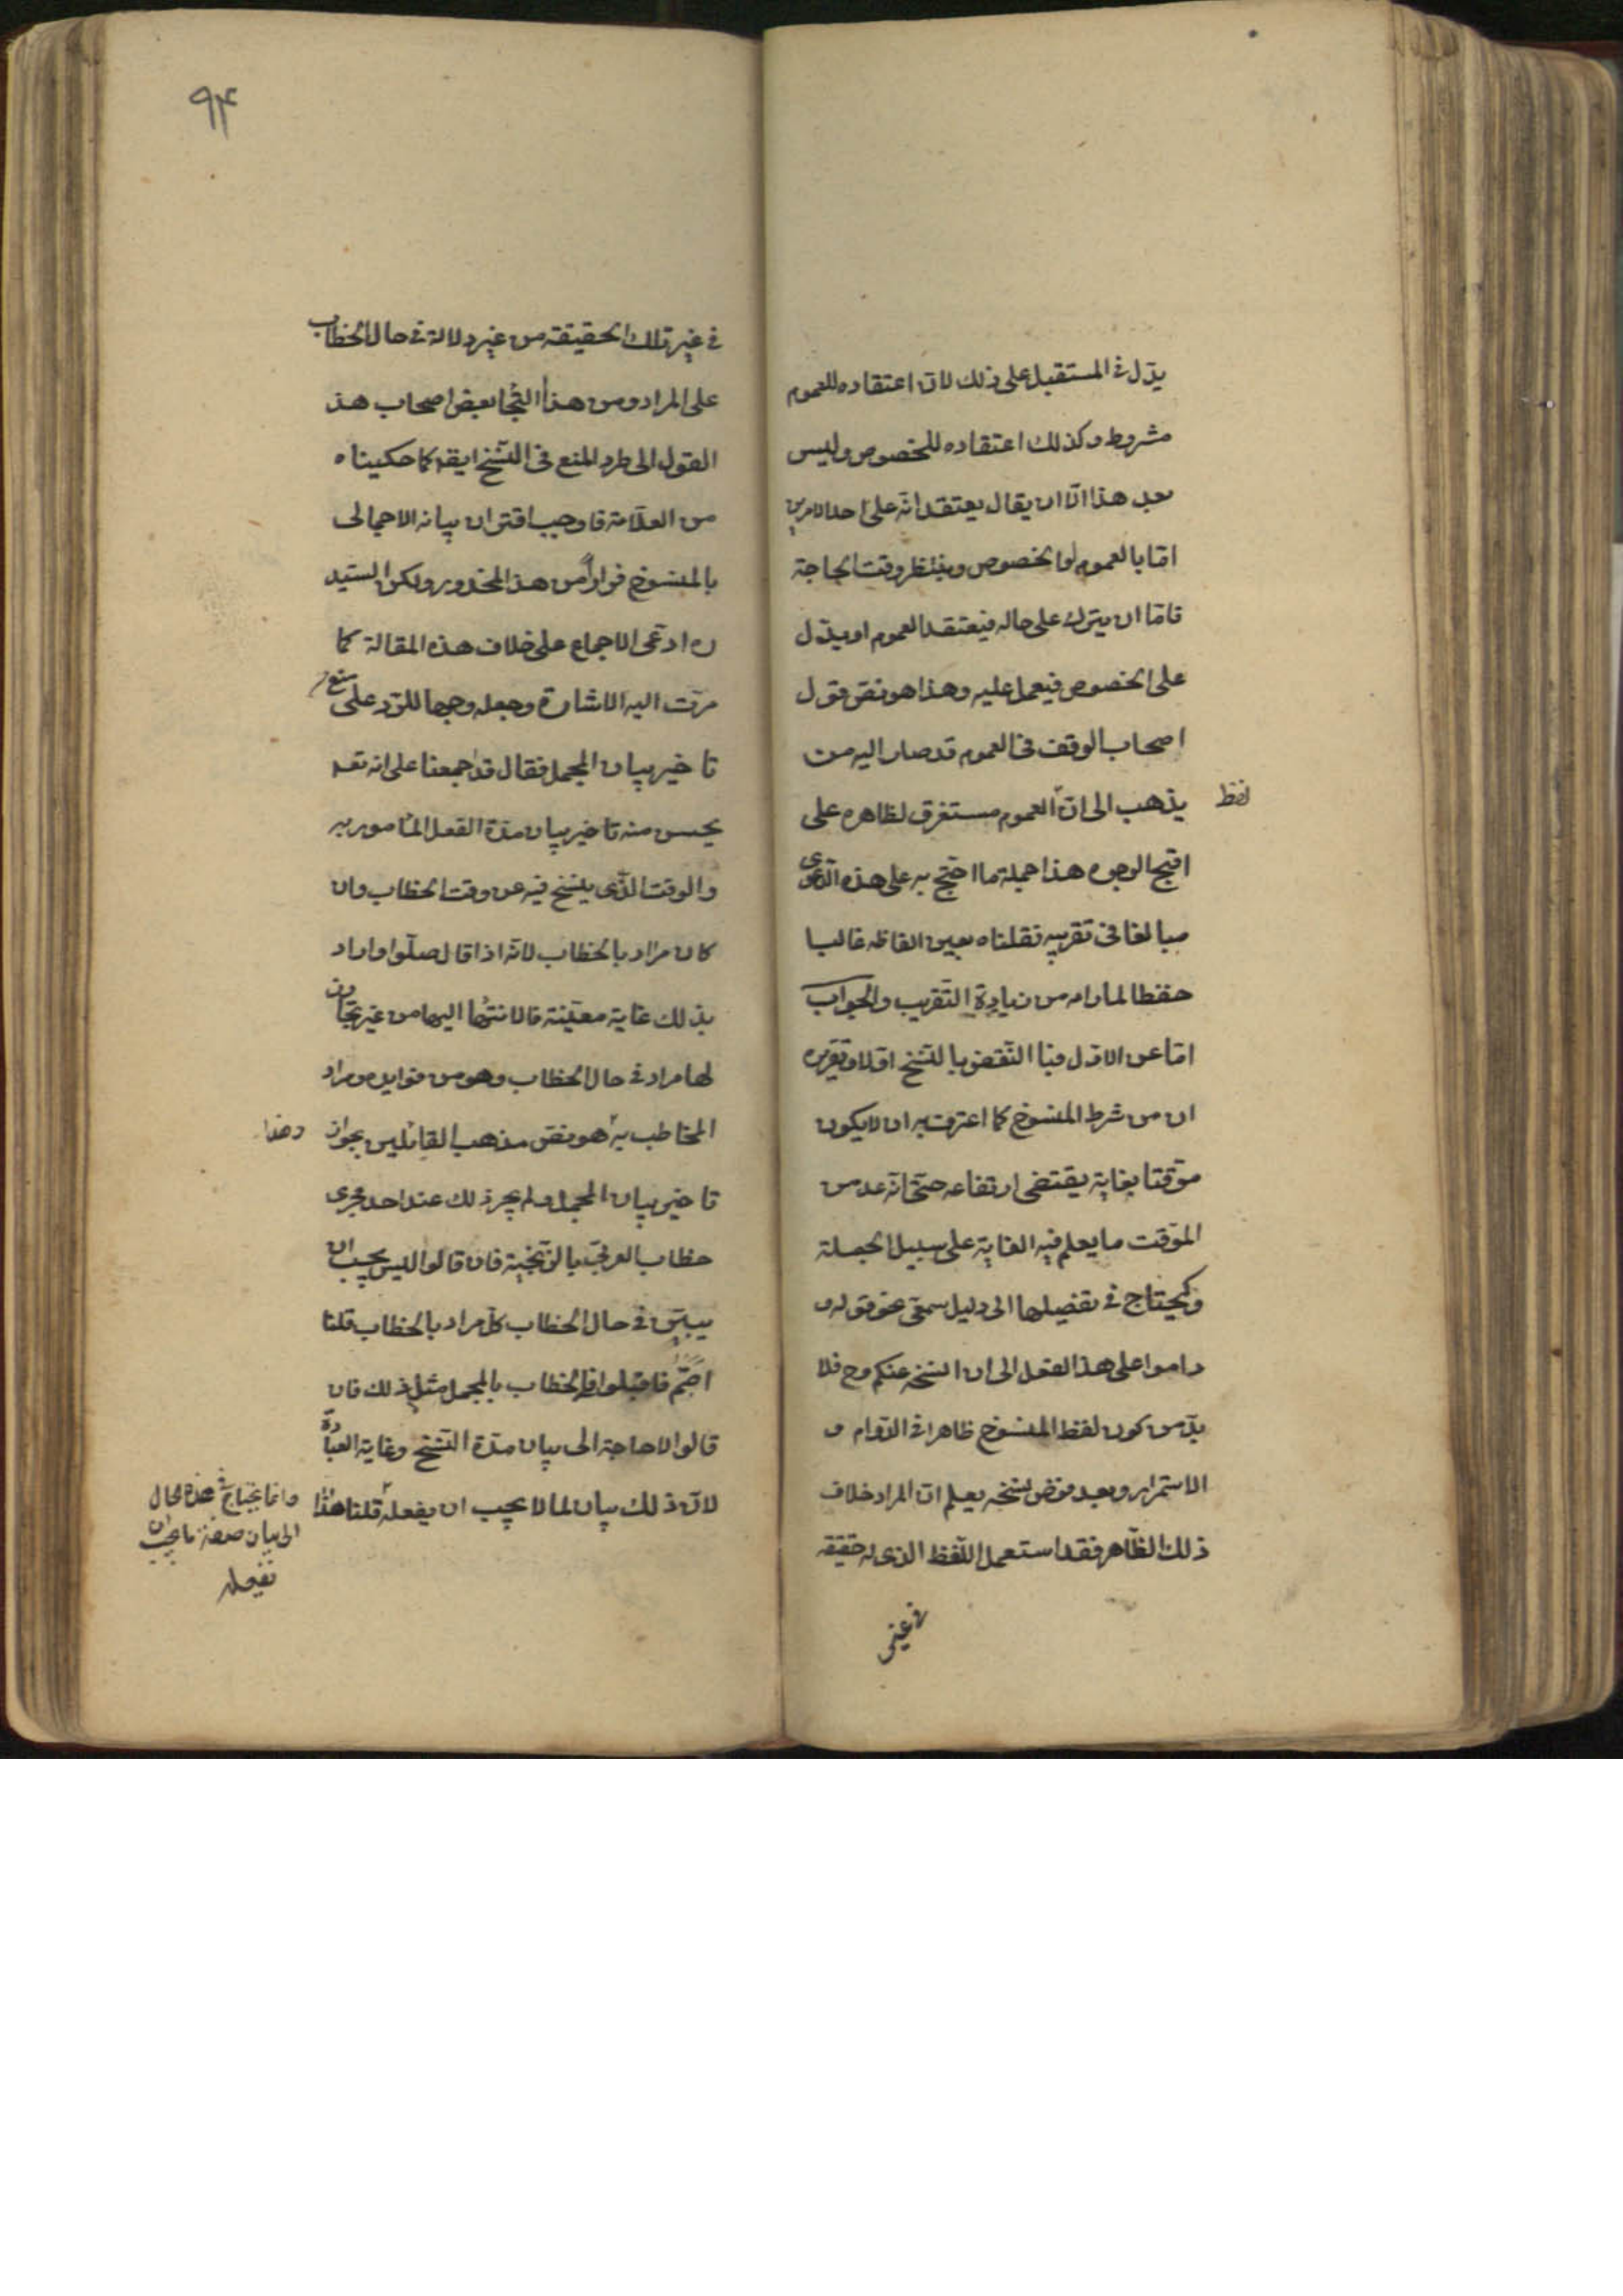 يدل في المستقبل على ذلك لان اعتقاده للعموم
مشروط وكذلك اعتقاده للخصوص وليس
بعد هذا الا ان يقال يعتقد انه على احد الامرين
اما بالعموم او الخصوص وينتظر وقت الحاجة
فاما ان يترك على حاله فيعتقد العموم او يدل
على الخصوص فيعمل عليه وهذا هو نص قول
اصحاب الوقف في العموم قد صار اليه من
يذهب الى ان العموم مستغرق لظاهره على
لفظ
اقبح الوجوه هذا جملة ما احتج به على هذه الدعوى
مبالغا في تقريبه نقلناه بعين الفاظه غالبا
حفظا لما رامه من زيادة التقريب والجواب
اما عن الاول فبا النقض بالنسخ اولا وتقريره
ان من شرط المنسوخ كما اعترف به ان لا يكون
موقتا بغاية يقتضي ارتفاعه حتى انه عد من
الموقت ما يعلم فيه الغاية على سبيل الجملة
ويحتاج في تفصيلها الى دليل سمعي نحو قوله
داموا على هذا الفعل الى ان انسخه عنكم وح فلا
بد من كون لفظ المنسوخ ظاهرا في الدوام و
الاستمرار وبعد فرض نسخه يعلم ان المراد خلاف
ذلك الظاهر فقد استعمل اللفظ الذي له حقيقة
في غير
٩٤
في غير تلك الحقيقة من غير دلالة في حال الخطاب
على المراد ومن هذا التجا بعض اصحاب هذ
القول الى طرد المنع في النسخ ايضا كما حكيناه
من العلامة فاوجب اقتران بيانه الاجمالى
بالمنسوخ فرارا من هذ المحذور ولكن السيد
ره ادعى الاجماع على خلاف هذه المقالة كما
مرت اليه الاشارة وجعله وجها للرد على منع
تاخير بيان المجمل فقال قد اجمعنا على انه تعـ
يحسن منه تاخير بيان مدة الفعل المامور به
والوقت الذى ينسخ فيه عن وقت الخطاب وان
كان مراد بالخطاب لانه اذا قال صلوا واراد
بذلك غاية معينة فالانتهاء اليها من غير تجاوز
لها مراد في حال الخطاب وهو من فوايد ومراد
المخاطب به هو نص مذهب القائلين بجواز
وهذا
تاخير بيان المجمل ولم يجر ذلك عند احد مجرى
خطاب العربي بالزنجية فان قالوا ليس يجب ان
يبين في حال الخطاب كل مراد بالخطاب قلنا
اصبتم فاقبلوا في الخطاب بالمجمل مثل ذلك فان
قالوا لا حاجة الى بيان مدة النسخ وغاية العبادة
لان ذلك بيان لما لا يجب ان يفعله قلنا هذا
وانما يحتاج في هذه الحال
الى بيان صفة ما يجب ان
يفعله